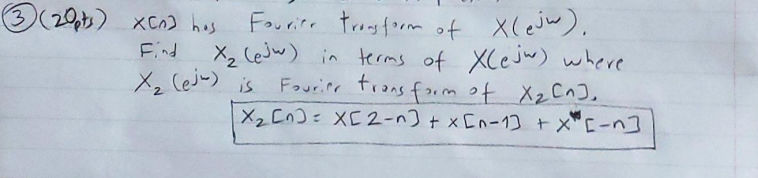 ③ (20pts) x[n] has Fourier transform of X(e^jw).
Find X₂(e^jw) in terms of X(e^jw) where
X₂(e^jw) is Fourier transform of X₂[n].
X₂[n] = X[2-n] + x[n-1] + X*[-n]